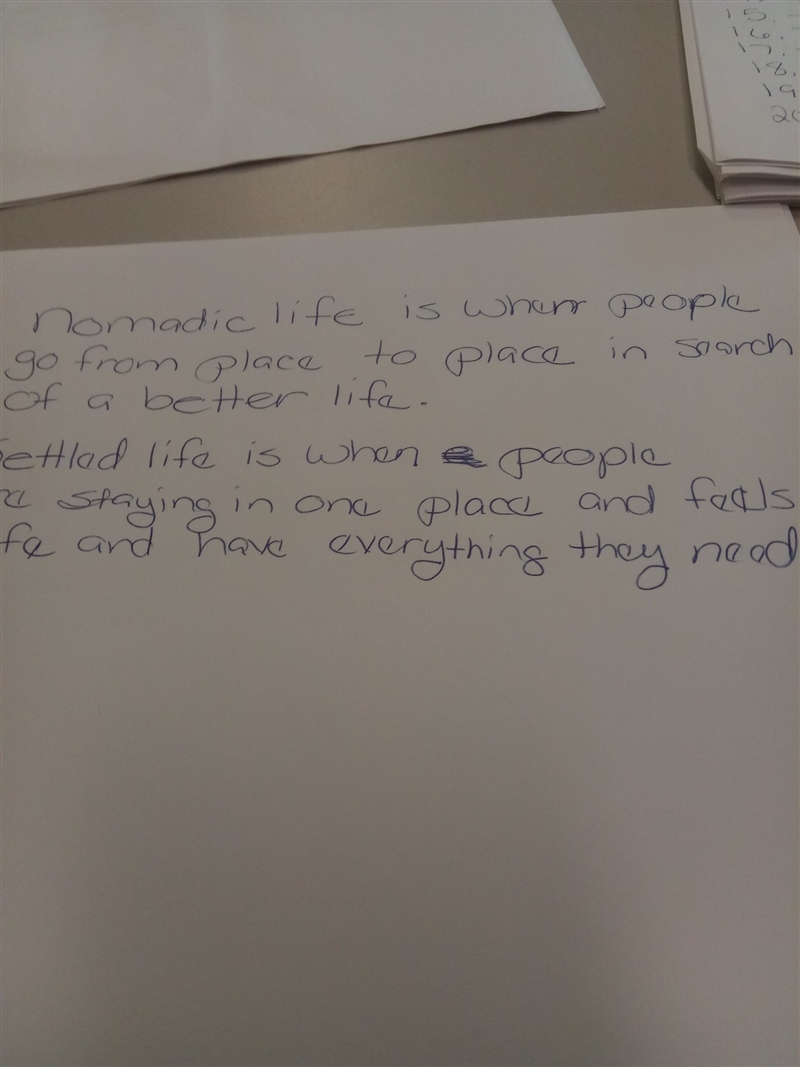 15.
16.
17.
18.
19
20
Nomadic life is when people
go from place to place in search
of a better life.
Settled life is when people
e staying in one place and feels
fe and have everything they need